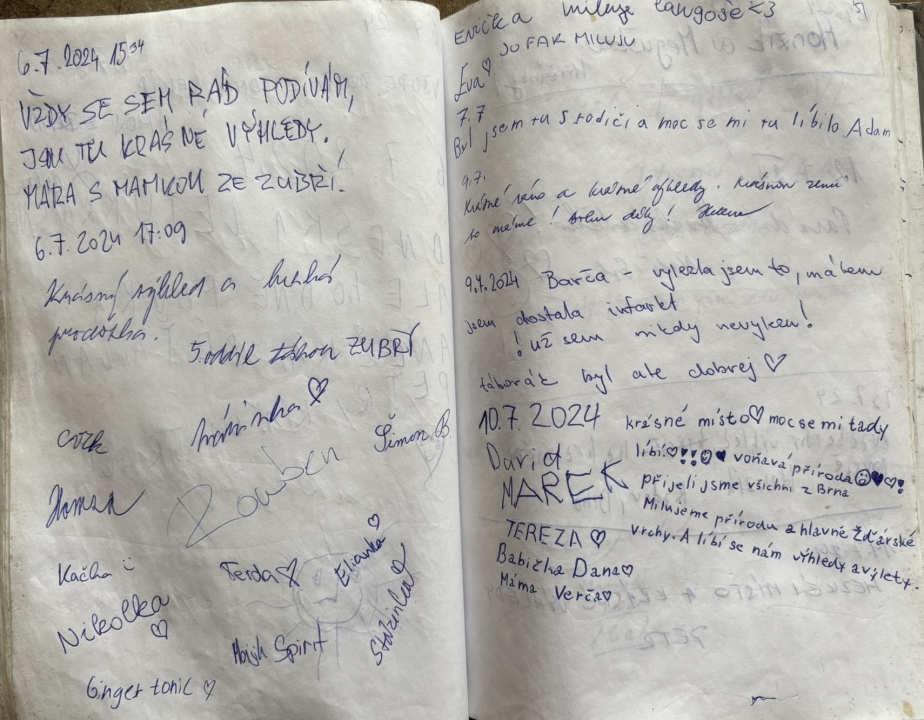 6.7.2024 15³⁴
VŽDY SE SEM RÁD PODÍVÁM,
JSOU TU KRÁSNÉ VÝHLEDY.
MÁRA S MAMKOU ZE ZUBŘÍ!
6.7.2024 17:09
Krásný výhled a hezká
procházka.
5. oddíl tábora ZUBŘÍ
♡
Šimon B.
Honza
Kačka
Ferda
Elianka ♡
Nikolka
♡
Spirit
Ginger tonic ♡
Evička miluje langoše <3
JO FAK MILUJU
Eva ♡
7.7
Byl jsem tu s rodiči a moc se mi tu líbilo Adam
9.7.
Krásné ráno a krásné výhledy. Krásnou zemi
to máme! díky! Helena
9.7.2024 Barča - vylezla jsem to, málem
jsem dostala infarkt
! už sem nikdy nevylezu!
táborák byl ale dobrej ♡
10.7.2024
David
MAREK
TEREZA ♡
Babička Dana♡
Máma Verča♡
krásné místo♡ moc se mi tady
líbí♡ voňavá příroda
přijeli jsme všichni z Brna
Milujeme přírodu a hlavně Žďárské
vrchy. A líbí se nám výhledy a výlety.